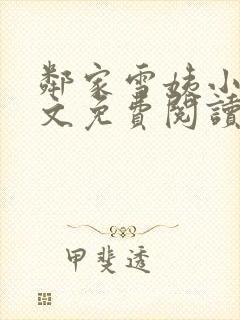 鄰家雪姨小
文免費閱讀
甲斐透